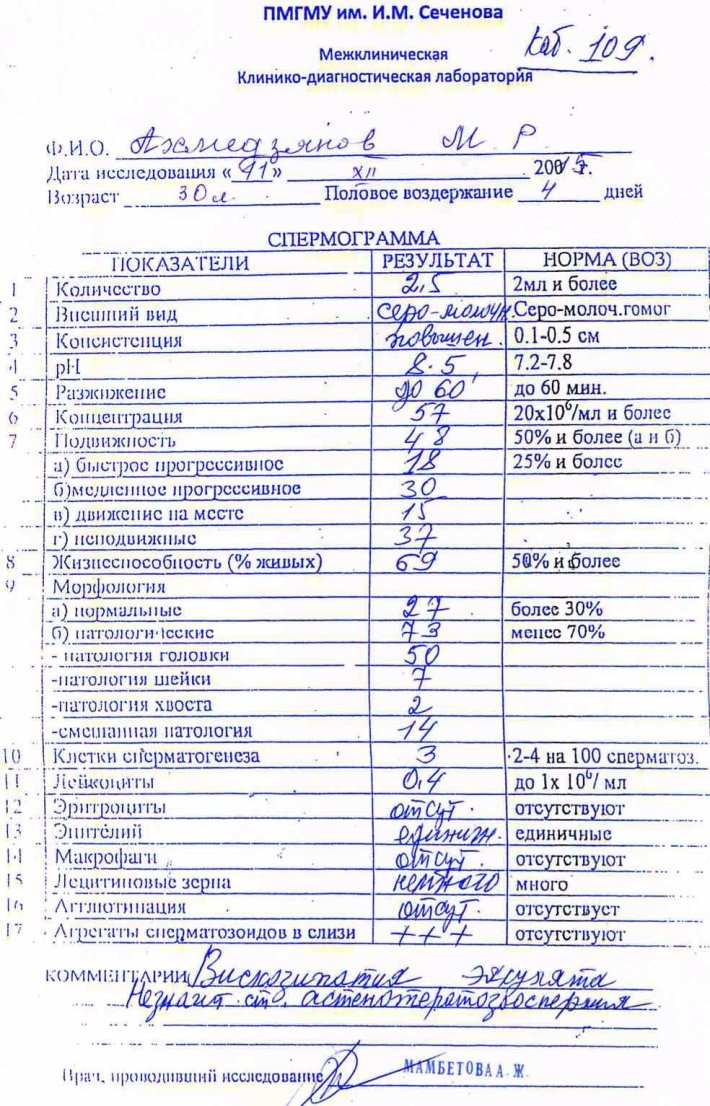 ПМГМУ им. И.М. Сеченова
Каб. 109.
Межклиническая
Клинико-диагностическая лаборатория
Ф.И.О. Ахмедзянов М Р
Дата исследования « 11 » XII 2015 г.
Возраст 30 л. Половое воздержание 4 дней
СПЕРМОГРАММА
ПОКАЗАТЕЛИ РЕЗУЛЬТАТ НОРМА (ВОЗ)
1 Количество 2,5 2мл и более
2 Внешний вид серо-молочн. Серо-молоч.гомог
3 Консистенция повышен. 0.1-0.5 см
4 pH 8.5 7.2-7.8
5 Разжижение до 60' до 60 мин.
6 Концентрация 57 20x10⁶/мл и более
7 Подвижность 48 50% и более (а и б)
а) быстрое прогрессивное 18 25% и более
б)медленное прогрессивное 30
в) движение на месте 15
г) неподвижные 37
8 Жизнеспособность (% живых) 69 50% и более
9 Морфология
а) нормальные 27 более 30%
б) патологические 73 менее 70%
- патология головки 50
-патология шейки 7
-патология хвоста 2
-смешанная патология 14
10 Клетки сперматогенеза 3 2-4 на 100 сперматоз.
11 Лейкоциты 0,4 до 1x 10⁶/ мл
12 Эритроциты отсут. отсутствуют
13 Эпителий единичн. единичные
14 Макрофаги отсут. отсутствуют
15 Лецитиновые зерна немного много
16 Агглютинация отсут. отсутствует
17 Агрегаты сперматозоидов в слизи +++ отсутствуют
КОММЕНТАРИИ Вискозипатия эякулята
Незначит. ст. астенотератозооспермия
Врач, проводивший исследование МАМБЕТОВА А. Ж.